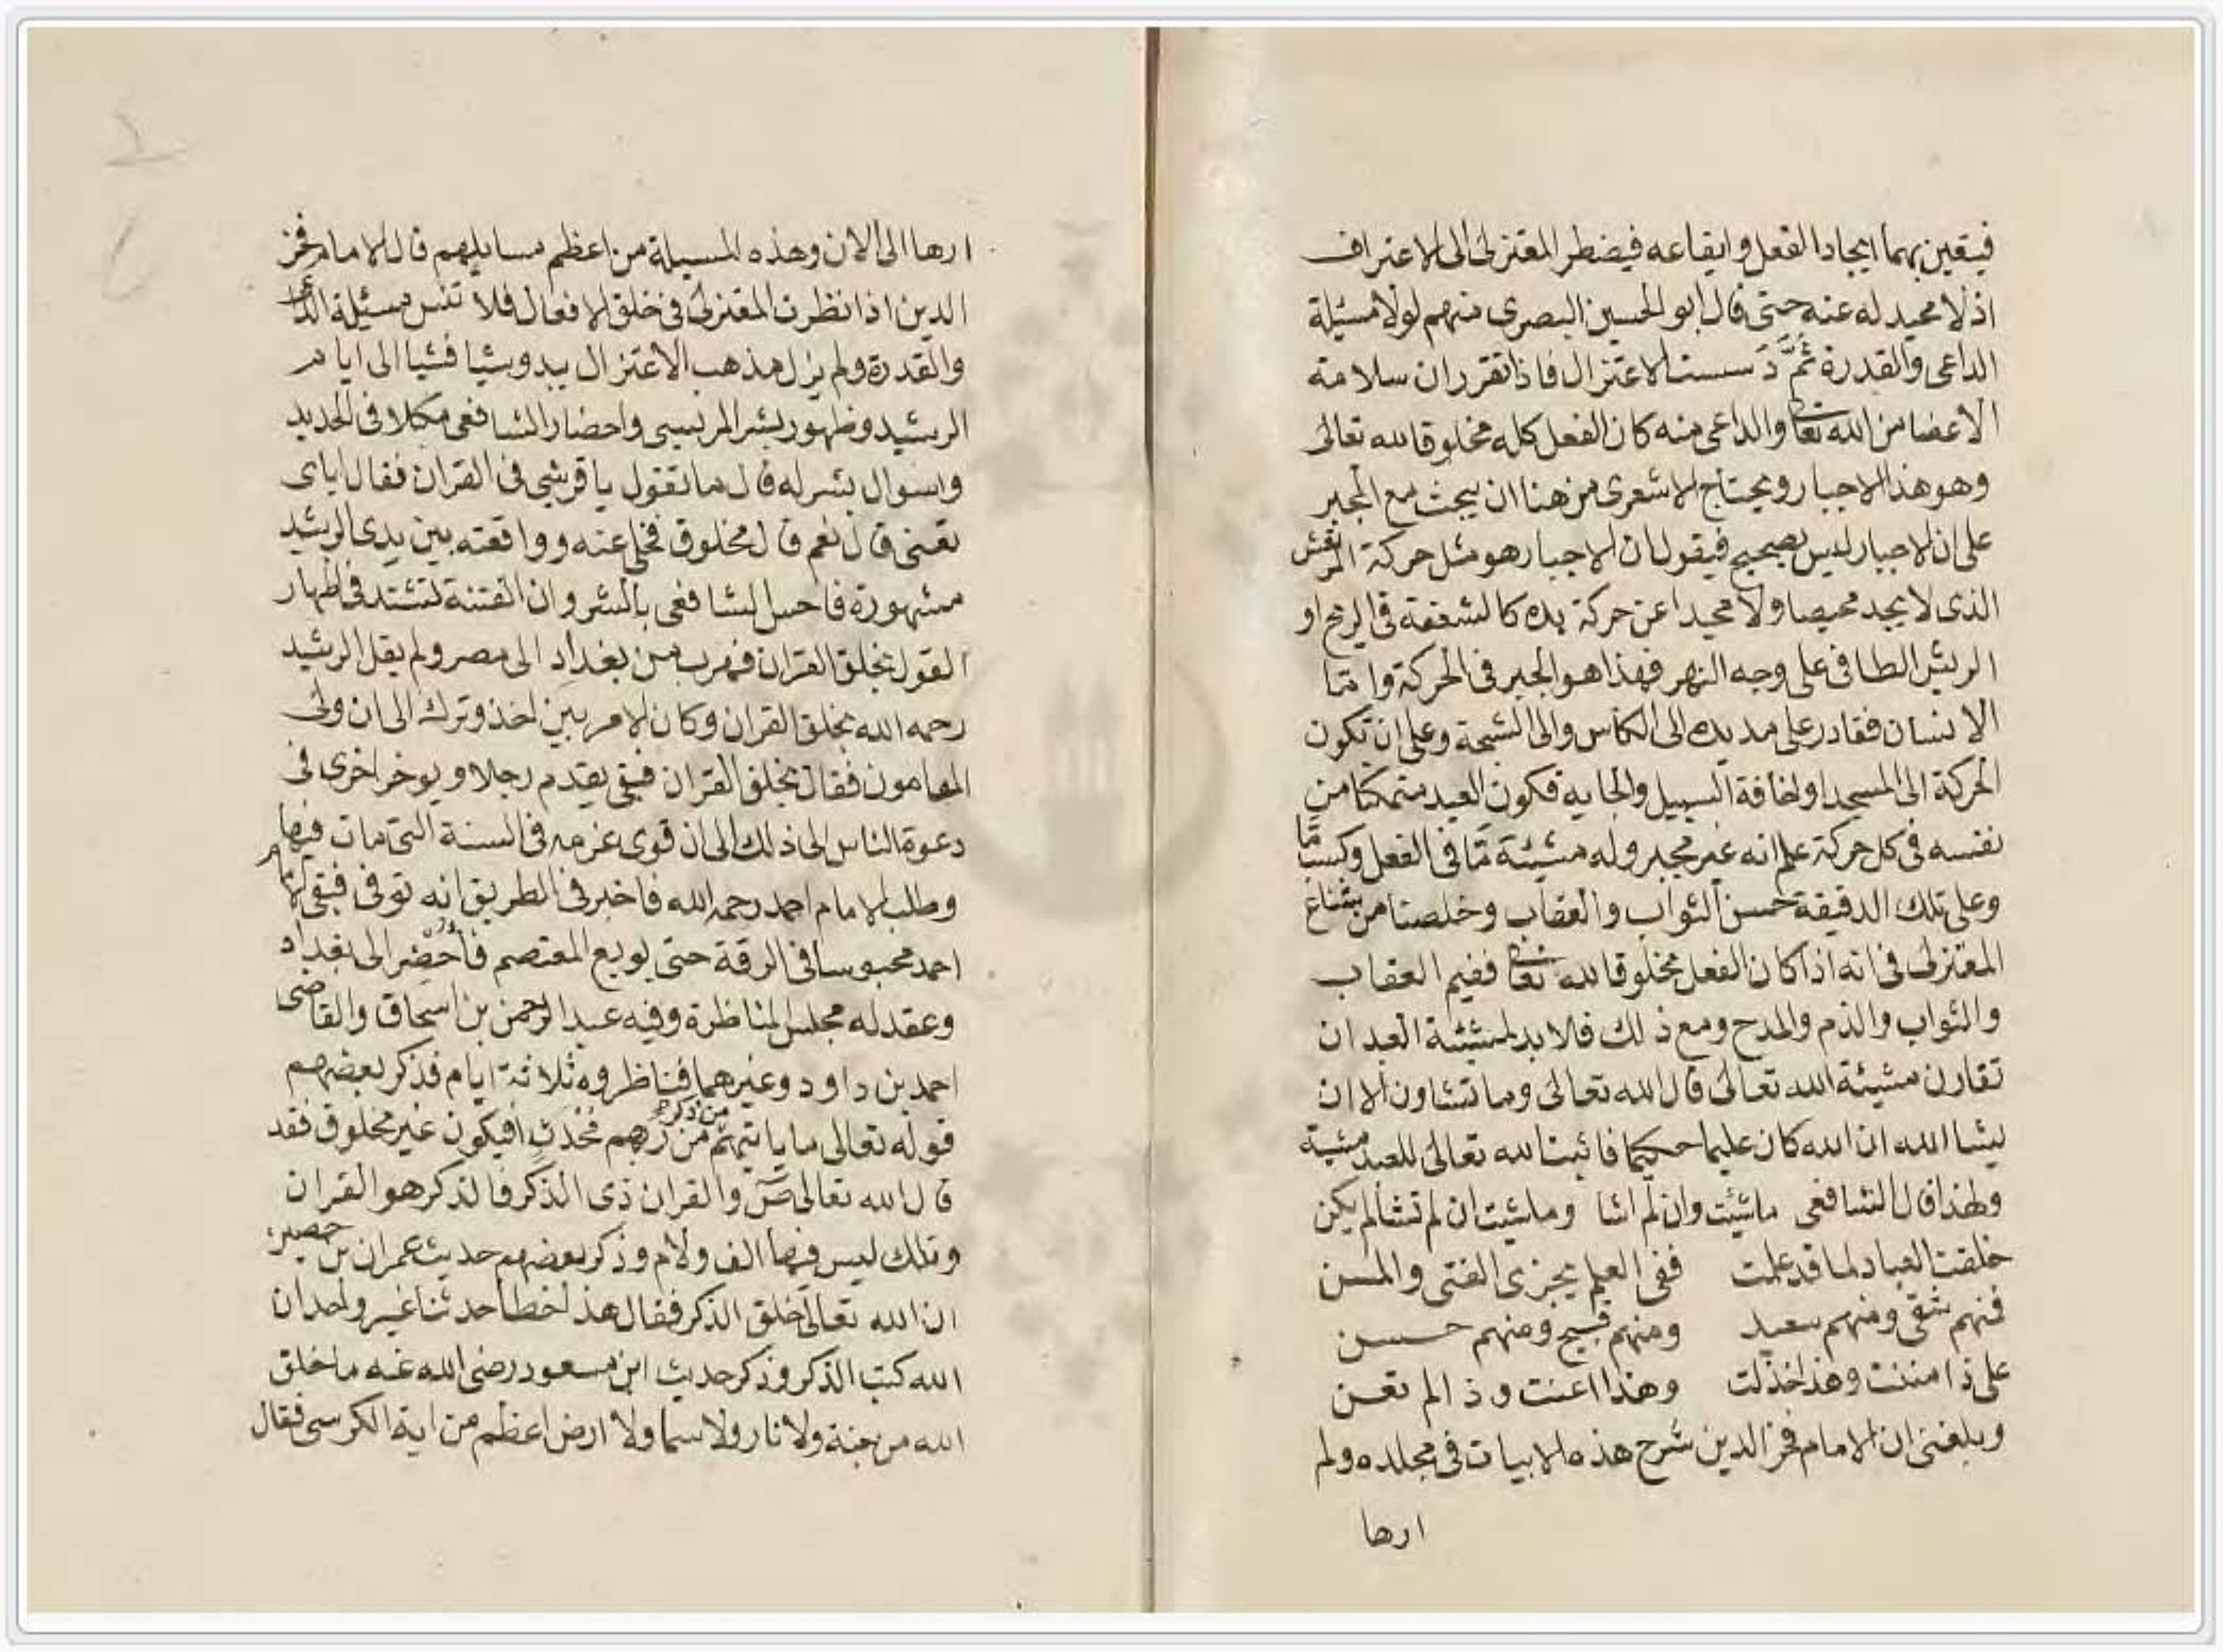 فيتعين بهما ايجاد الفعل وايقاعه فيضطر المعتزلى الى الاعتراف
اذ لا محيد له عنه حتى قال ابو الحسين البصرى منهم لولا مسئلة
الداعى والقدرة ثُمَّ دَسست الاعتزال فاذا تقرر ان سلامة
الاعضا من الله تعا والداعى منه كان الفعل كله مخلوقا لله تعالى
وهو هذا الاجبار ويحتاج الاشعرى من هنا ان يبحث مع المجبر
على ان الاجبار ليس بصحيح فيقول ان الاجبار هو مثل حركة المرتعش
الذى لا يجد محيصا ولا محيدا عن حركة يده كالسعفة فى الريح او
الريش الطافى على وجه النهر فهذا هو الجبر فى الحركة واما
الانسان فقادر على مد يده الى الكاس والى السبحة وعلى ان تكون
الحركة الى المسجد او لخافة السبيل والجايه فكون العبد متمكنا من
نفسه فى كل حركة علم انه غير مجبر وله مشيئة مّا فى الفعل وكسبا مّا
وعلى تلك الدقيقة حسن الثواب والعقاب وخلصنا من شناع
المعتزلى فى انه اذا كان الفعل مخلوقا لله تعا ففيم العقاب
والثواب والذم والمدح ومع ذلك فلا بد لمشيئة العبد ان
تقارن مشيئة الله تعالى قال الله تعالى وما تشاون الا ان
يشا الله ان الله كان عليما حكيما فاثبت الله تعالى للعبد مشية
ولهذا قال الشافعى ماشيت وان لم اشا وماشيت ان لم تشا لم يكن
خلقت العباد لما قد علمت ففى العلم يجرى الفتى والمسن
فمنهم شقى ومنهم سعيد ومنهم قبيح ومنهم حسن
على ذا مننت وهذا خذلت وهذا اعنت وذا لم تعن
وبلغنى ان الامام فخر الدين شرح هذه الابيات فى مجلده ولم
ارها
ارها الى الان وهذه المسيلة من اعظم مسايلهم قال الامام فخر
الدين اذا نظرت المعتزلى فى خلق الافعال فلا تنس مسئلة الداعى
والقدرة ولم يزل مذهب الاعتزال يبدو شيا فشيا الى ايام
الرشيد وظهور بشر المريسى واحضار الشافعى مكبلا فى الحديد
وسوال بشر له قال ما تقول يا قرشى فى القران فقال اياى
تعنى قال نعم قال مخلوق فخلى عنه وواقعته بين يدى الرشيد
مشهورة فاحس الشافعى بالشر وان الفتنة تشتد فى اظهار
القول بخلق القران فهرب من بغداد الى مصر ولم يقل الرشيد
رحمه الله بخلق القران وكان الامر بين اخذ وترك الى ان ولى
المامون فقال بخلق القران فبقى يقدم رجلا ويوخر اخرى فى
دعوة الناس الى ذلك الى ان قوى عزمه فى السنة التى مات فيها
وطلب الامام احمد رحمه الله فاخبر فى الطريق انه توفى فبقى الامام
احمد محبوسا فى الرقة حتى بويع المعتصم فأُحْضِر الى بغداد
وعقد له مجلس المناظرة وفيه عبد الرحمن بن اسحاق والقاضى
احمد بن داود وغيرهما فناظروه ثلاثة ايام فذكر بعضهم
قوله تعالى ما ياتيهم من ذكر من ربهم مُحْدَث افيكون غير مخلوق فقد
قال الله تعالى صٓ والقران ذى الذكر فالذكر هو القران
وتلك ليس فيها الف ولام وذكر بعضهم حديث عمران بن حصين
ان الله تعالى خلق الذكر فقال هذا خطا حدثنا غير واحد ان
الله كتب الذكر وذكر حديث ابن مسعود رضى الله عنه ما خلق
الله من جنة ولا نار ولا سما ولا ارض اعظم من اية الكرسى فقال